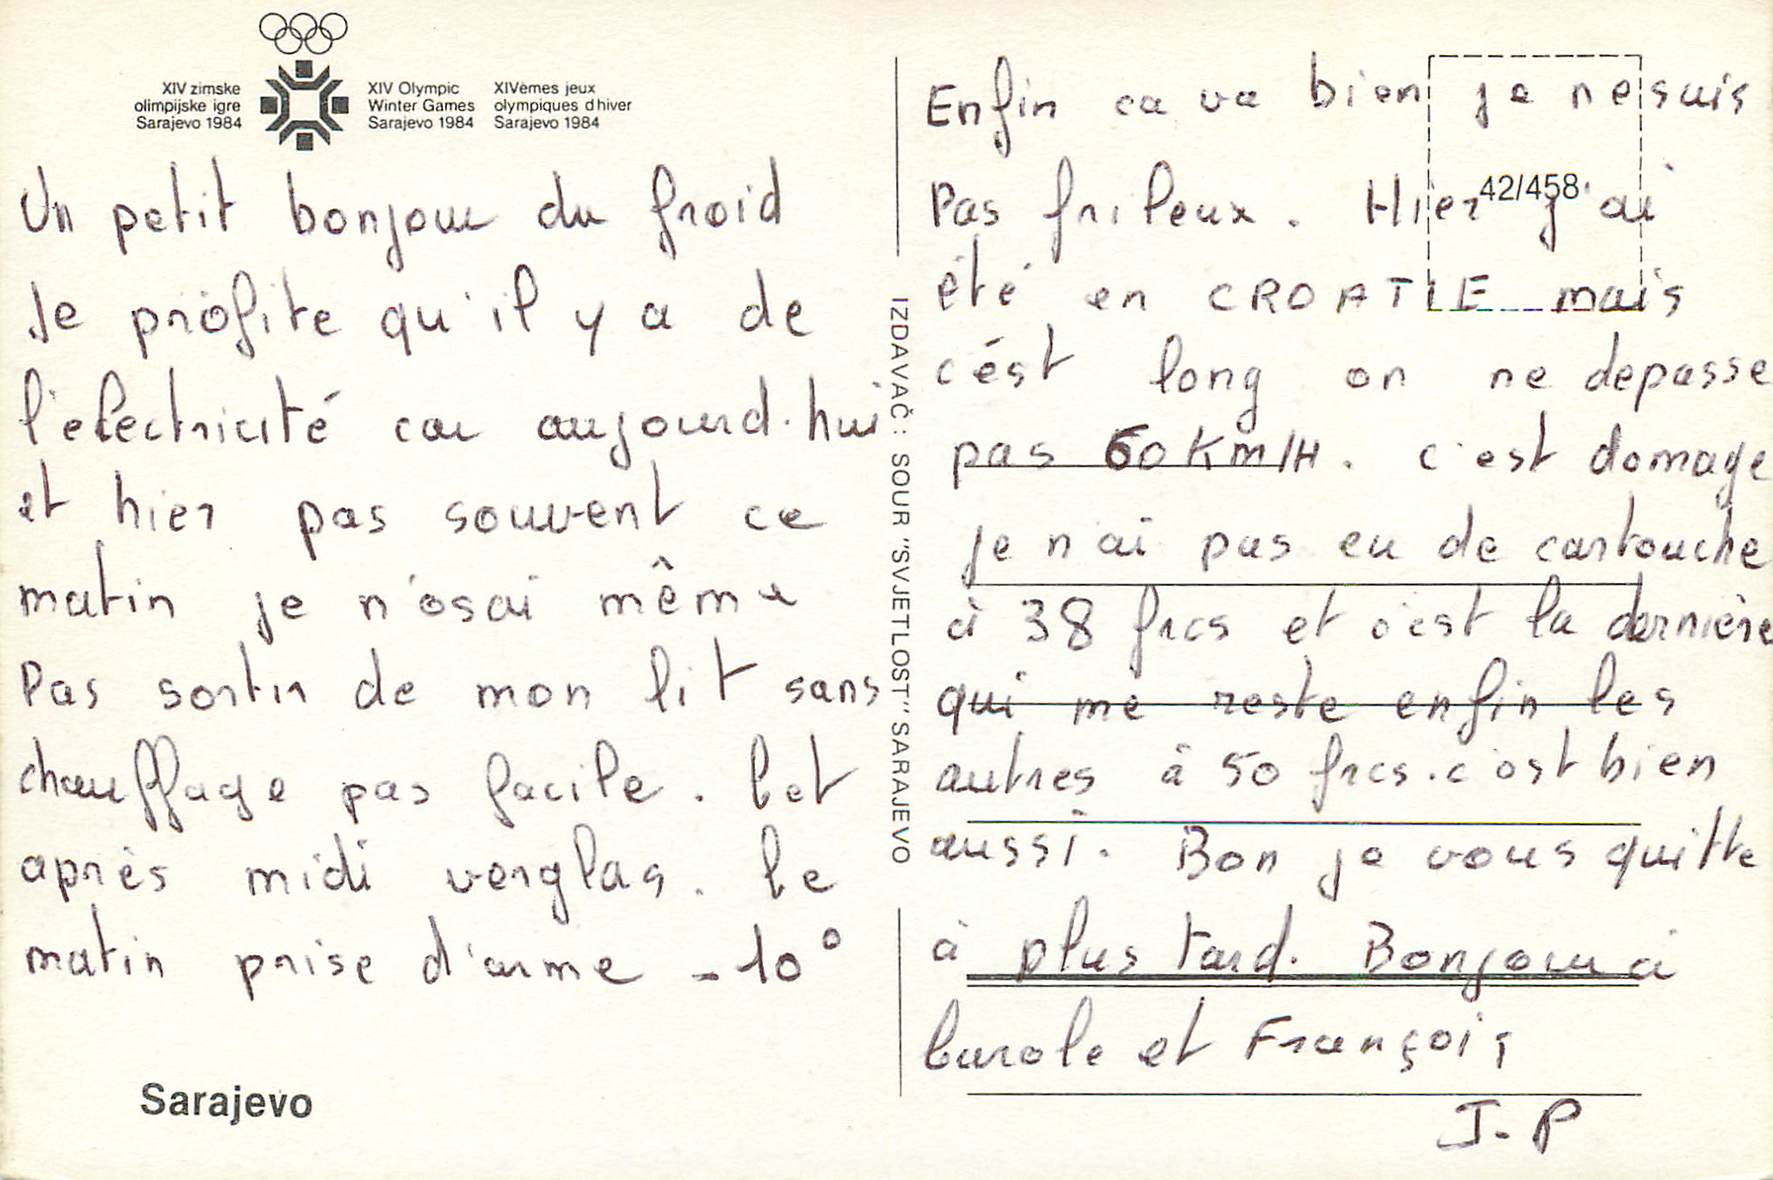 XIV zimske
olimpijske igre
Sarajevo 1984
XIV Olympic
Winter Games
Sarajevo 1984
XIVèmes jeux
olympiques d'hiver
Sarajevo 1984
Un petit bonjour du froid
Je profite qu'il y a de
l'electricité car aujourd'hui
et hier pas souvent ce
matin je n'osai même
Pas sortir de mon lit sans
chauffage pas facile. Cet
après midi verglas. Le
matin prise d'arme -10°
Sarajevo
IZDAVAČ: SOUR "SVJETLOST" SARAJEVO
42/458
Enfin ca va bien je ne suis
Pas frileux. Hier j'ai
été en CROATIE mais
c'ést long on ne depasse
pas 60 Km/H. c'est domage
je n'ai pas eu de cartouche
à 38 frcs et c'est la dernière
qui me reste enfin les
autres à 50 frcs. c'est bien
aussi. Bon je vous quitte
à plus tard. Bonjour à
Carole et François
J.P